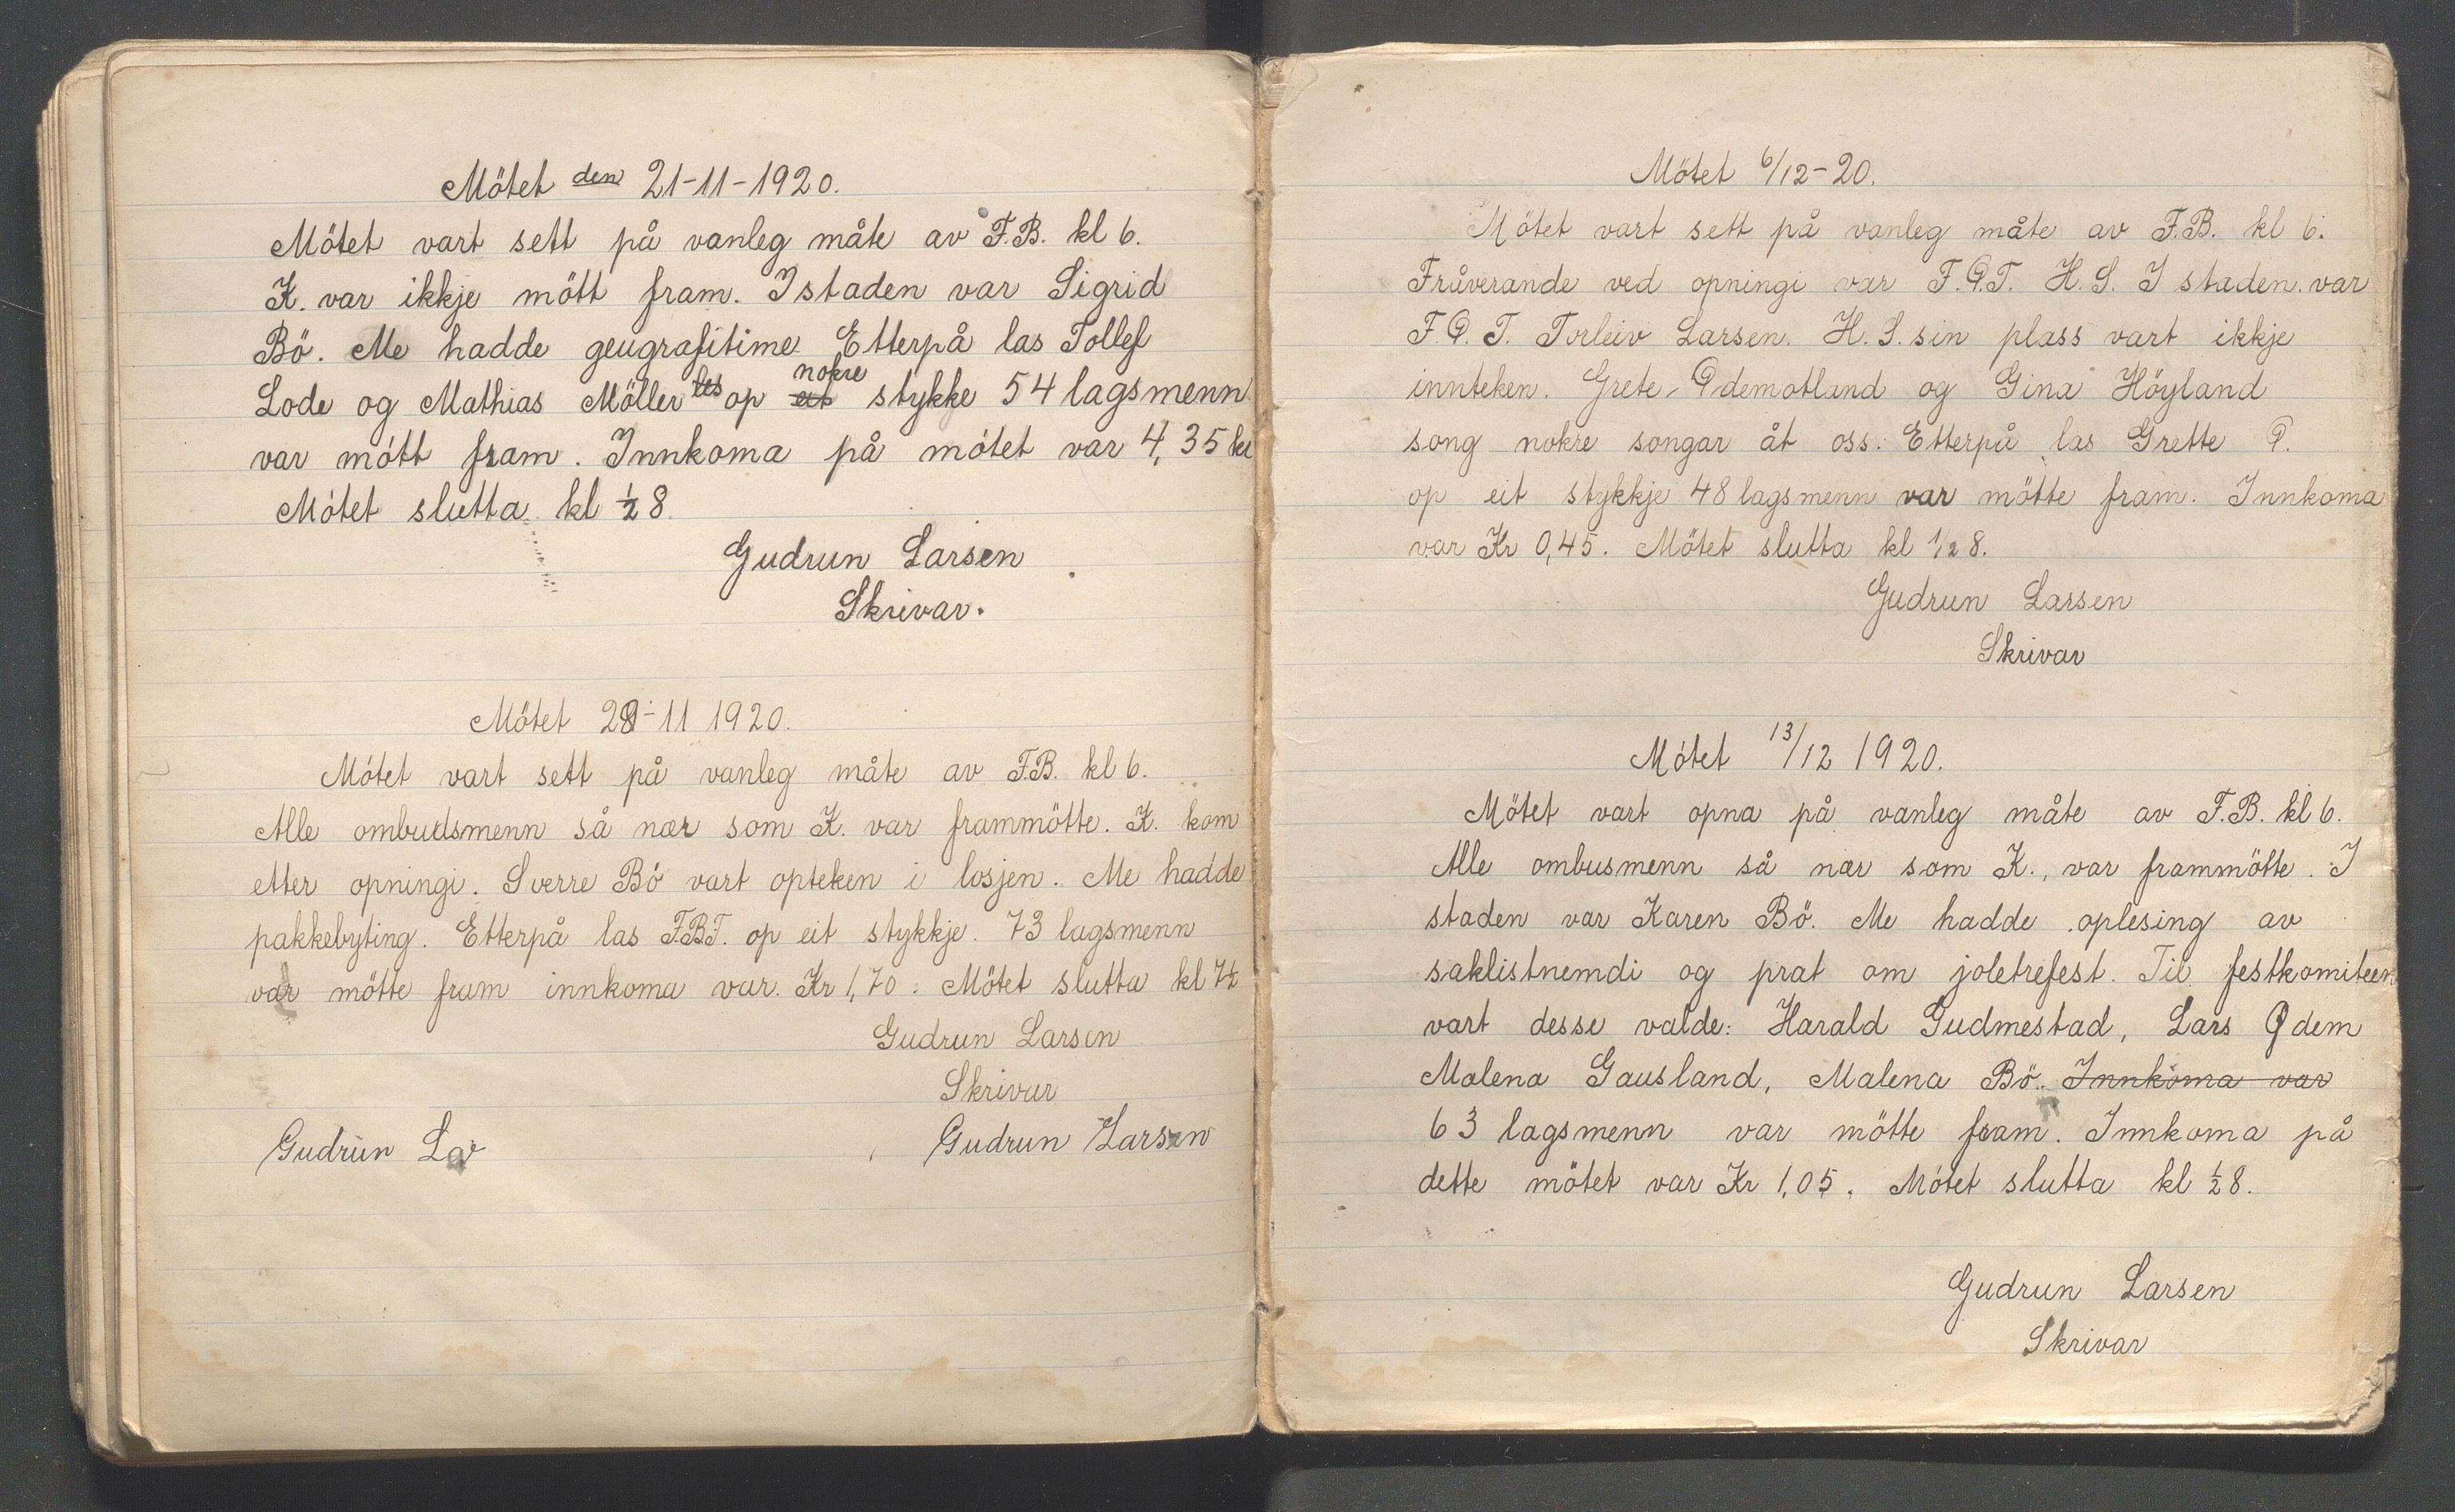 Mötet den 21-11-1920.
Mötet vart sett på vanleg måte av F.B. kl 6.
K. var ikkje mött fram. Istaden var Sigrid
Bö. Me hadde geugrafitime Etterpå las Tollef
Lode og Mathias Möller les op eit nokre stykke 54 lagsmenn
var mött fram. Innkoma på mötet var 4,35 kr
Mötet slutta kl ½ 8
Gudrun Larsen
Skrivar.
Mötet 28-11 1920.
Mötet vart sett på vanleg måte av F.B. kl 6.
Alle ombudsmenn så nær som K. var frammötte. K. kom
etter opningi. Sverre Bö vart opteken i losjen. Me hadde
pakkebyting. Etterpå las F.B.F. op eit stykkje. 73 lagsmenn
var mötte fram innkoma var. Kr 1,70. Mötet slutta kl 7½
Gudrun Larsen
Skrivar
Gudrun Lar
Gudrun Larsen
Mötet 6/12-20.
Mötet vart sett på vanleg måte av F.B. kl 6.
Fråverande ved opningi var F.Ø.T. H.S. I staden var
F.Ø.T. Torleiv Larsen. H.S. sin plass vart ikkje
innteken. Grete Ødemotland og Gina Höyland
song nokre songar åt oss. Etterpå las Grette Ø.
op eit stykkje 48 lagsmenn var mötte fram. Innkoma
var Kr 0,45. Mötet slutta kl 1/2 8.
Gudrun Larsen
Skrivar
Mötet 13/12 1920.
Mötet vart opna på vanleg måte av F.B. kl 6.
Alle ombusmenn så nær som K., var frammötte. I
staden var Karen Bö. Me hadde oplesing av
saklistnemdi og prat om joletrefest. Til festkomiteen
vart desse valde: Harald Gudmestad, Lars Ødem
Malena Gausland, Malena Bö. Innkoma var
63 lagsmenn var mötte fram. Innkoma på
dette mötet var Kr 1,05. Mötet slutta kl ½ 8.
Gudrun Larsen
Skrivar